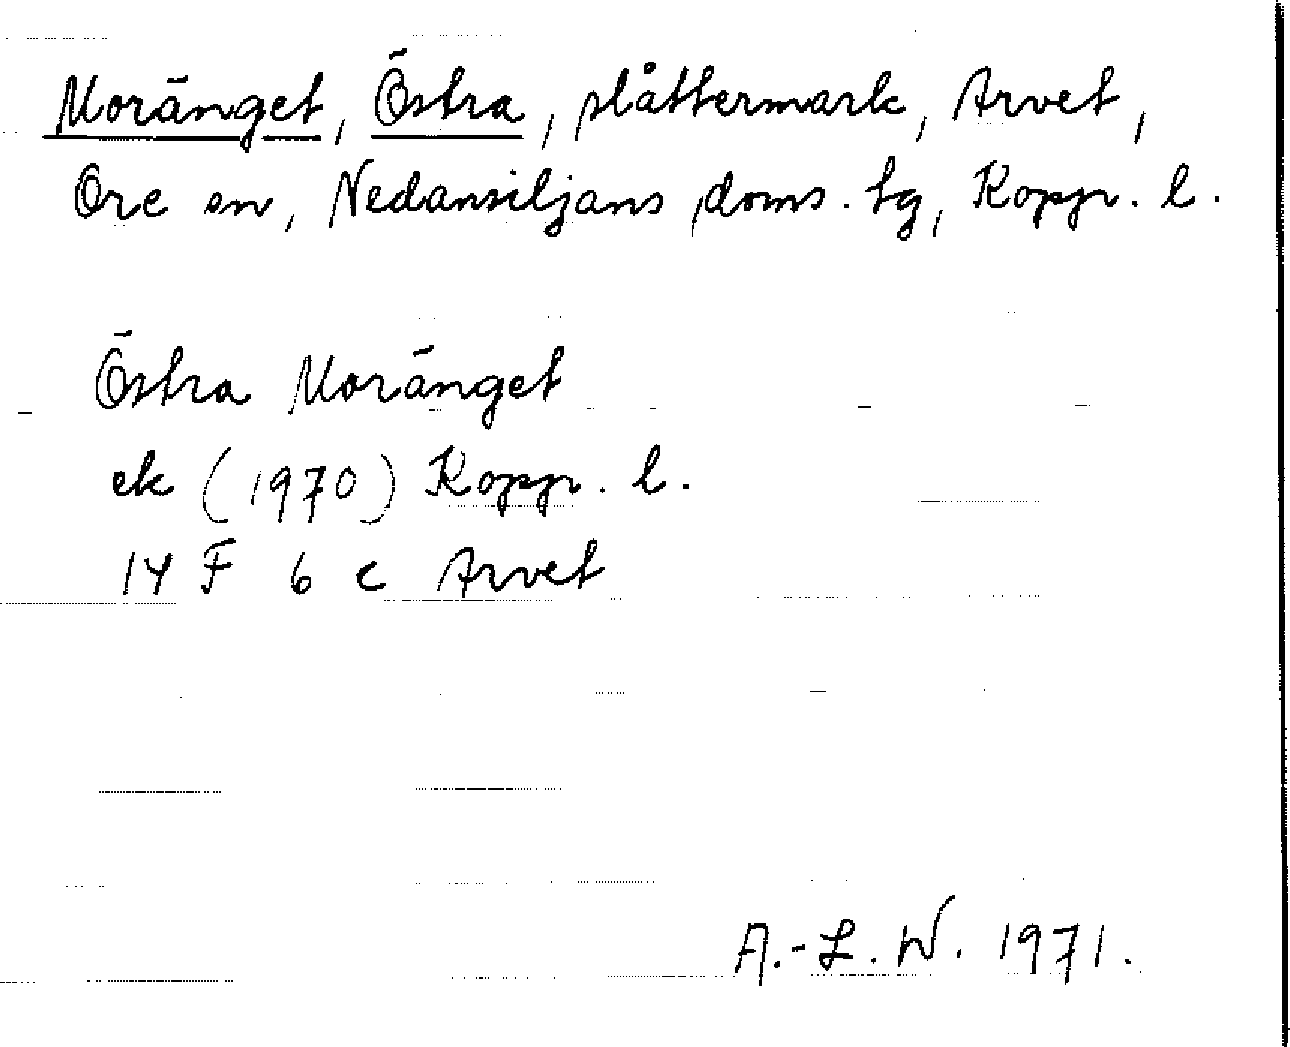 Moränget, Östra, slåttermark, Arvet,
Ore sn, Nedansiljans doms. tg, Kopp. l.
Östra Moränget
ek (1970) Kopp. l.
14 F 6 c Arvet
A.-L. W. 1971.